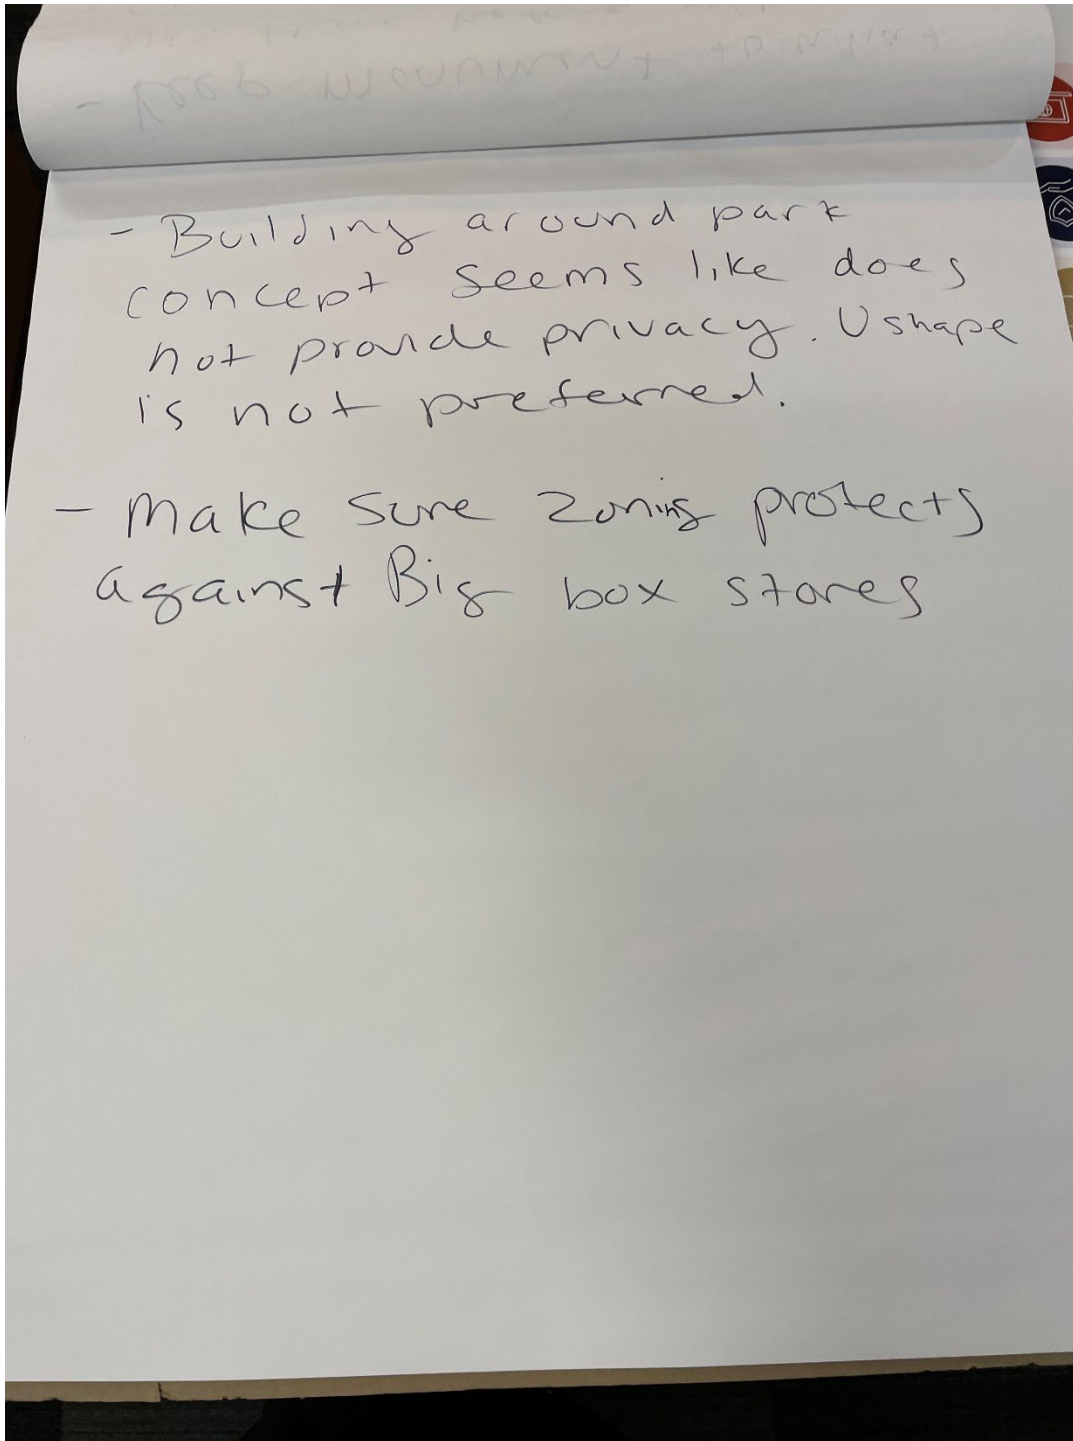 - Keep monument to what
- Building around park
concept seems like does
not provide privacy. U shape
is not preferred.
- Make sure zoning protects
against Big box stores